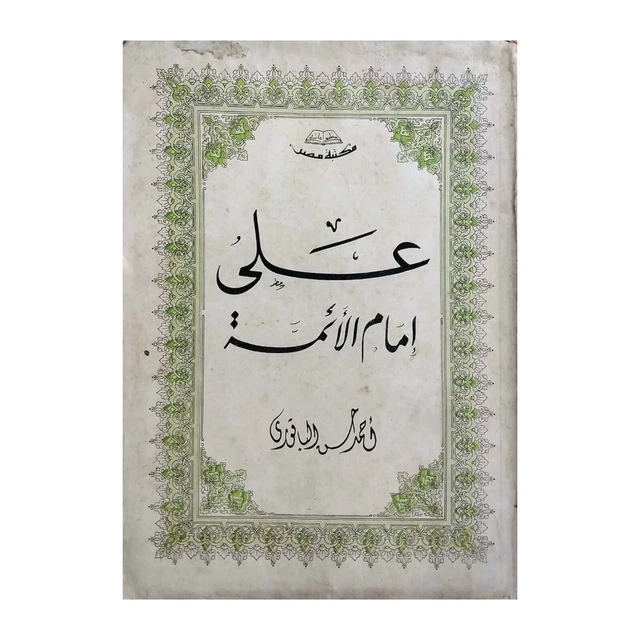 مكتبة مصر
على
إمام الأئمة
أحمد حسن الباقورى